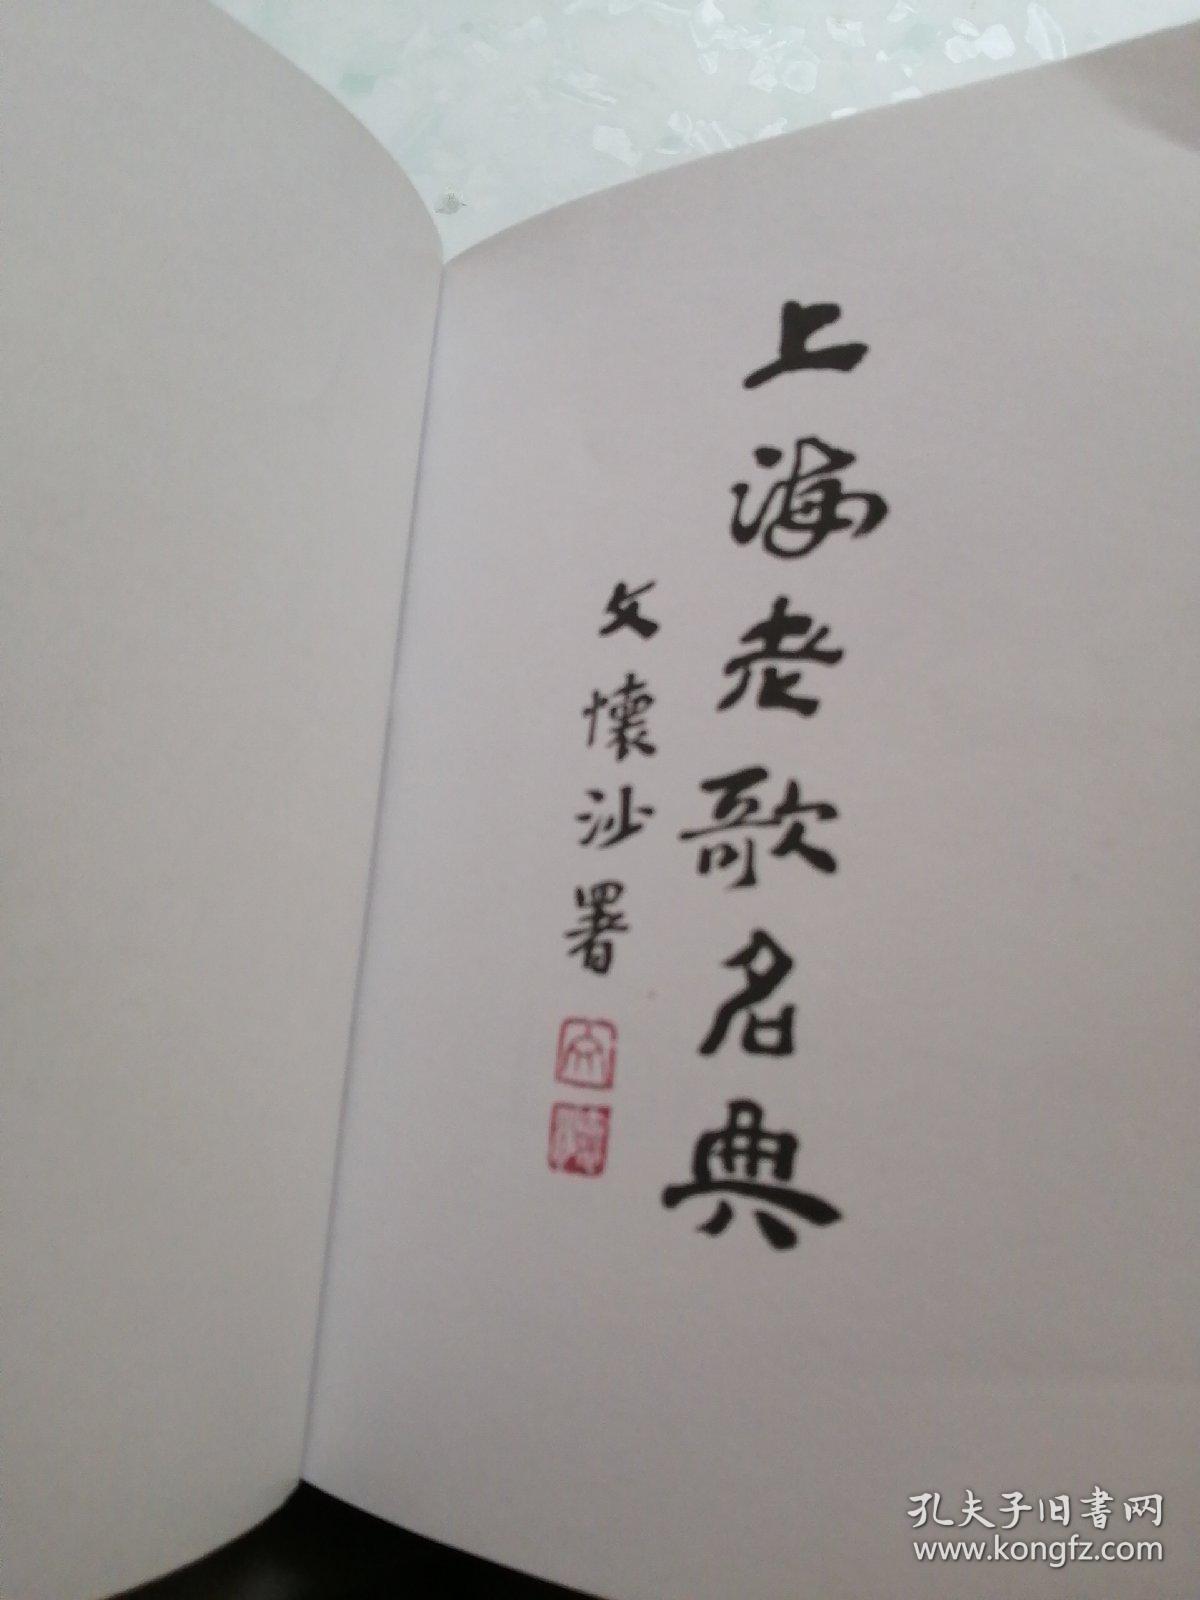 上海老歌名典
文懷沙署
孔夫子旧書网
www.kongfz.com